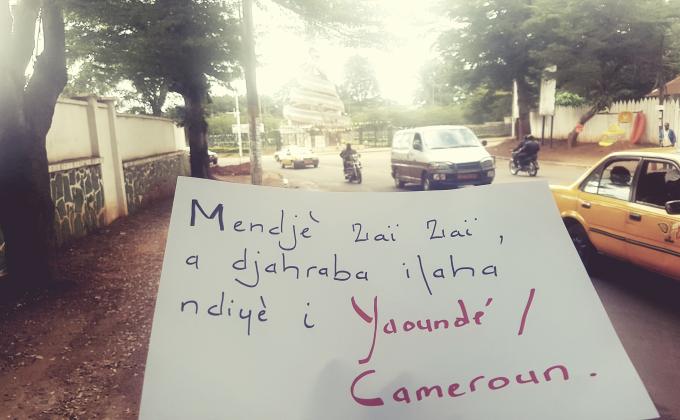 Mendjè Zaï Zaï,
a djahraba ilaha
ndiyè i Yaoundé /
Cameroun.